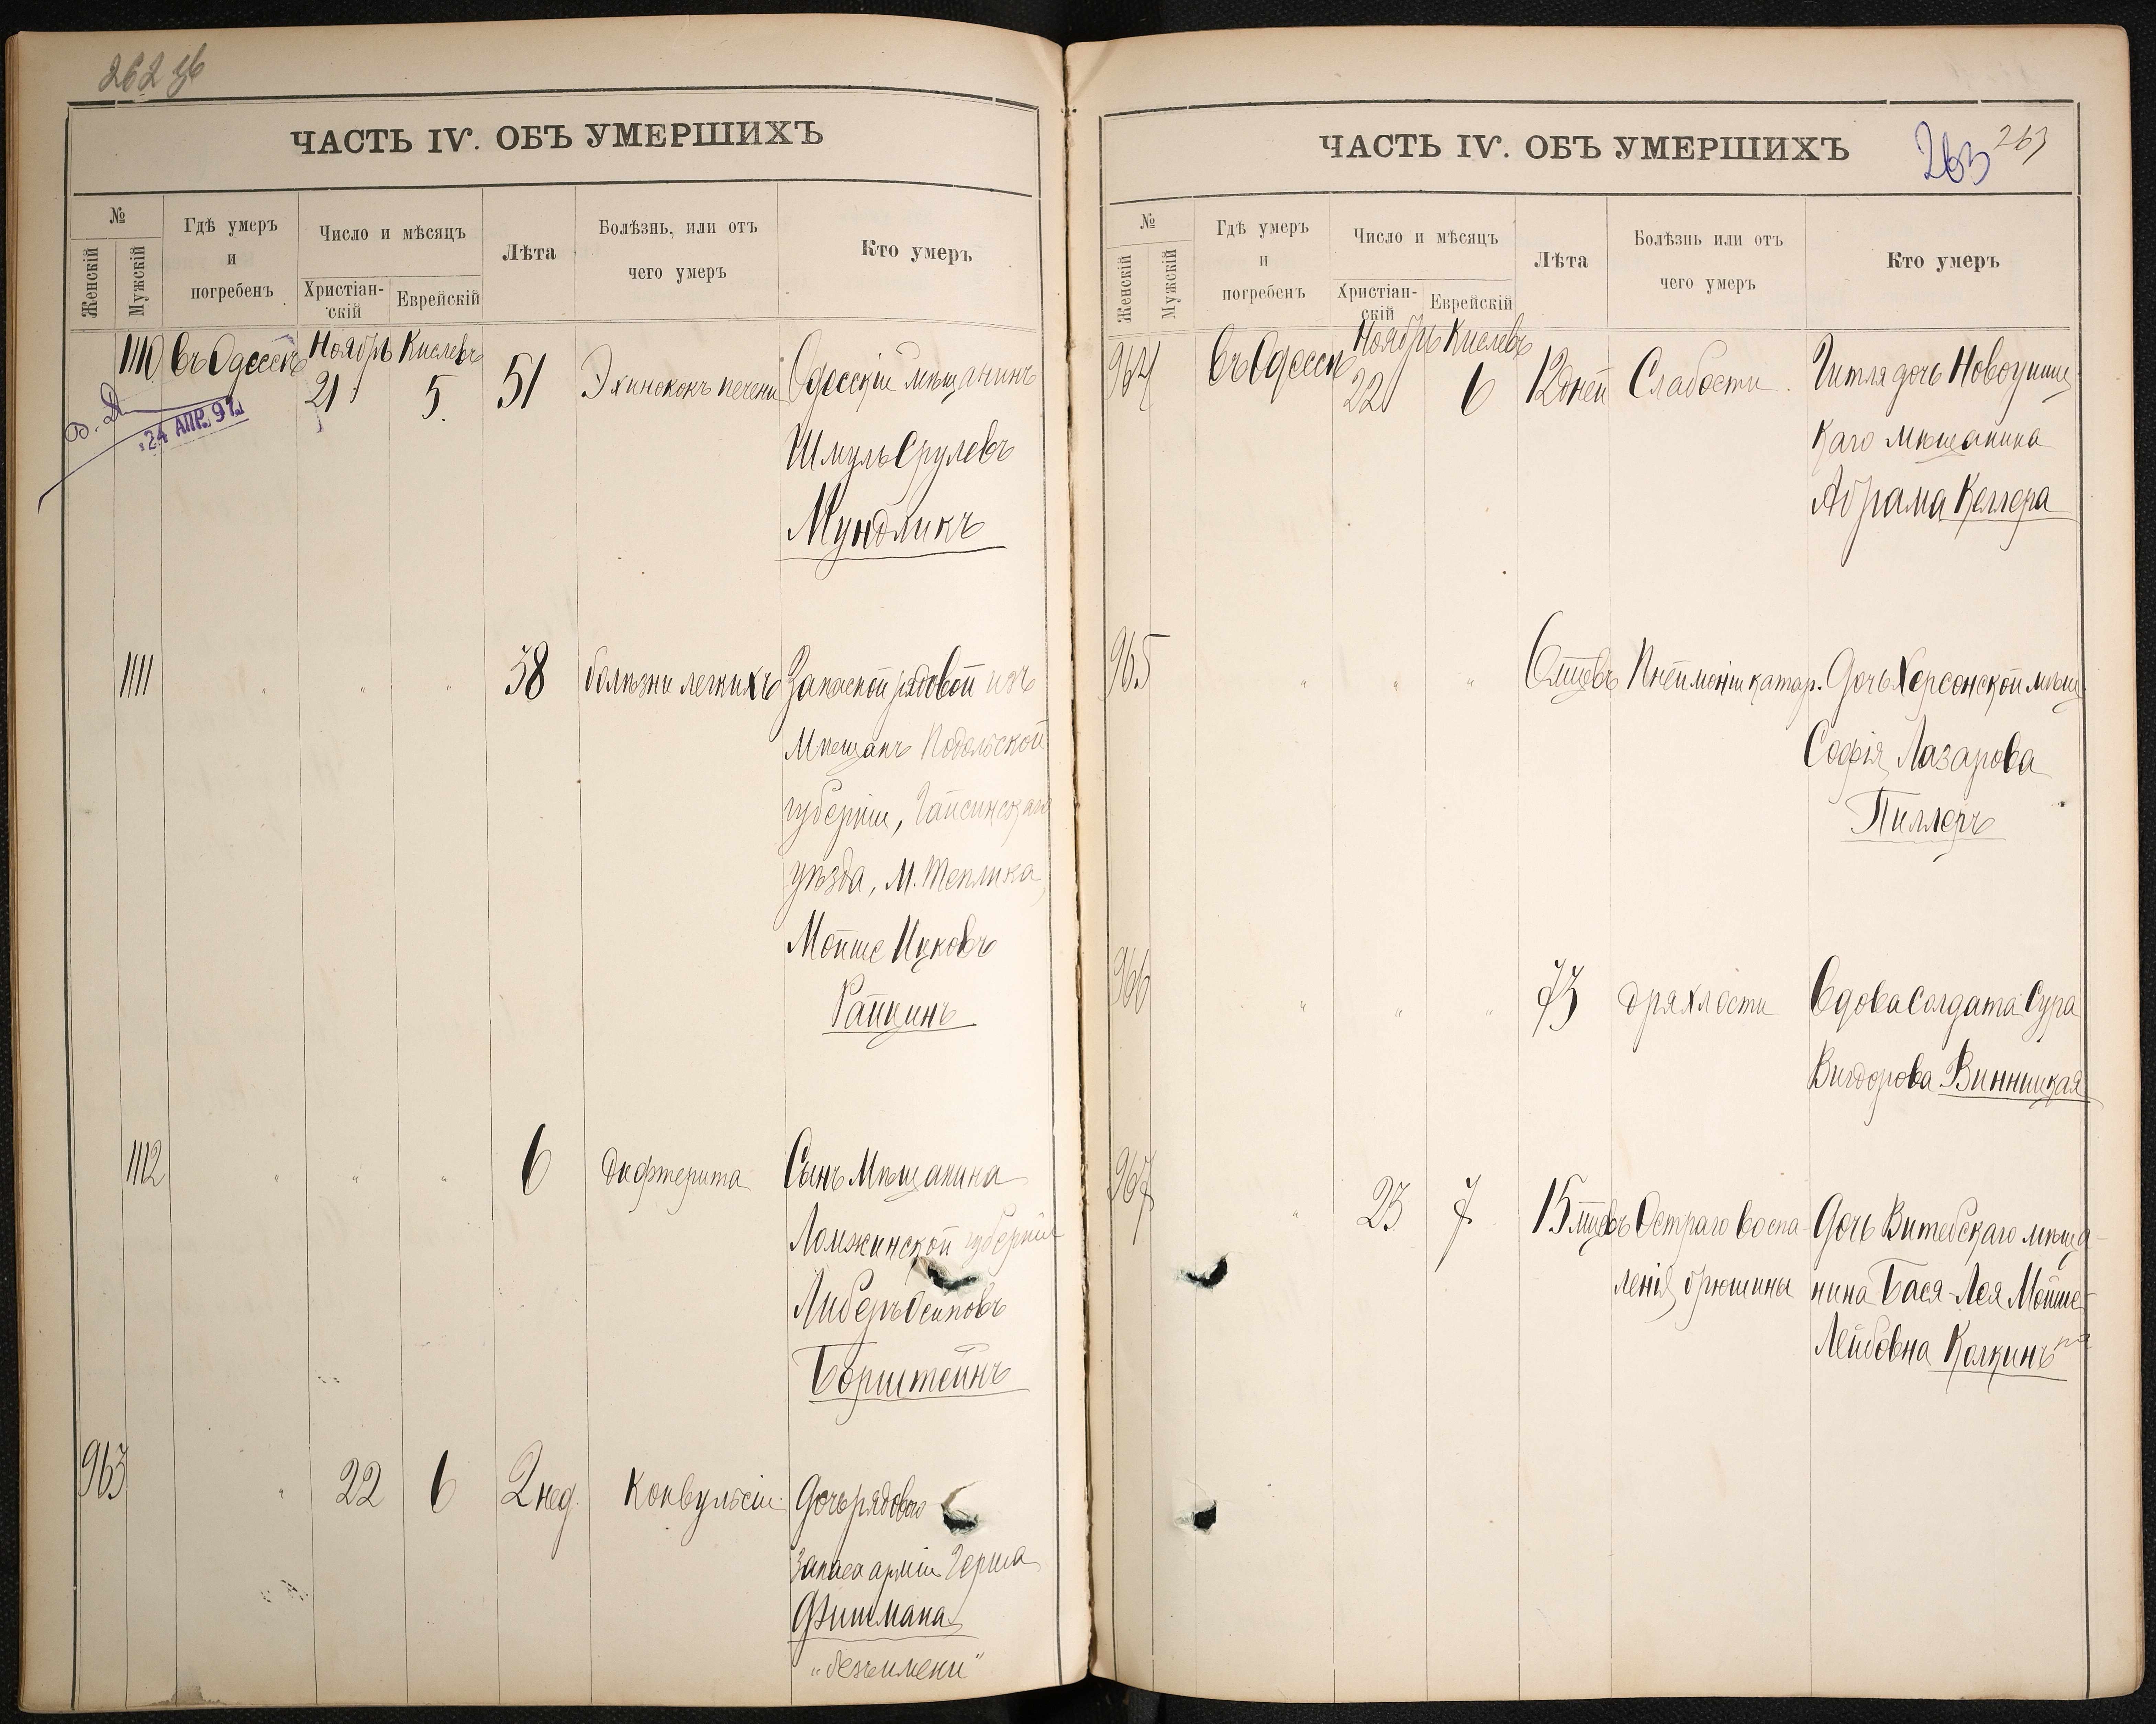 262 об
ЧАСТЬ IV. ОБЪ УМЕРШИХЪ
№
Женскій
Мужскій
Гдѣ умеръ
и
погребенъ
Число и мѣсяцъ
Христіан-
скій
Еврейскій
Лѣта
Болѣзнь, или отъ
чего умеръ
Кто умеръ
1110 Въ Одессѣ Ноябрь 21 Кислевъ 5. 51 Эхинококъ печени Одесскій мѣщанинъ
Шмуль Срулевъ
Мундликъ
24 АПР. 97
1111 " " " 38 болѣзни легкихъ Запасной рядовой изъ
Мѣщанъ Подольской
губерніи, Гайсинскаго
уѣзда, М. Теплика,
Мойше Ицковъ
Райцинъ
1112 " " " 6 дифтерита Сынъ Мѣщанина
Ломжинской губерніи
Либеръ Осиповъ
Борштейнъ
963 " 22 6 2 нед. Конвульсіи Дочь рядового
Запаса арміи Герша
Фишмана
"безъ имени"
ЧАСТЬ IV. ОБЪ УМЕРШИХЪ
263 263
№
Женскій
Мужскій
Гдѣ умеръ
и
погребенъ
Число и мѣсяцъ
Христіан-
скій
Еврейскій
Лѣта
Болѣзнь или отъ
чего умеръ
Кто умеръ
964 Въ Одессѣ Ноябрь 22 Кислевъ 6 12 дней Слабости. Гитля дочь Новоушиц
каго Мѣщанина
Абрама Келлера
965 " " " 6 мцевъ Пнеймоніи катар. Дочь Херсонской мѣщ.
Софія Лазарова
Пиллеръ
966 " " " 73 дряхлости Вдова Солдата Сура
Вигдорова Винницкая
967 " 23 7 15 мцевъ Остраго воспа- Дочь Витебскаго мѣща-
ленія брюшины нина Бася-Лея Мойше-
Лейбовна Колкинъ